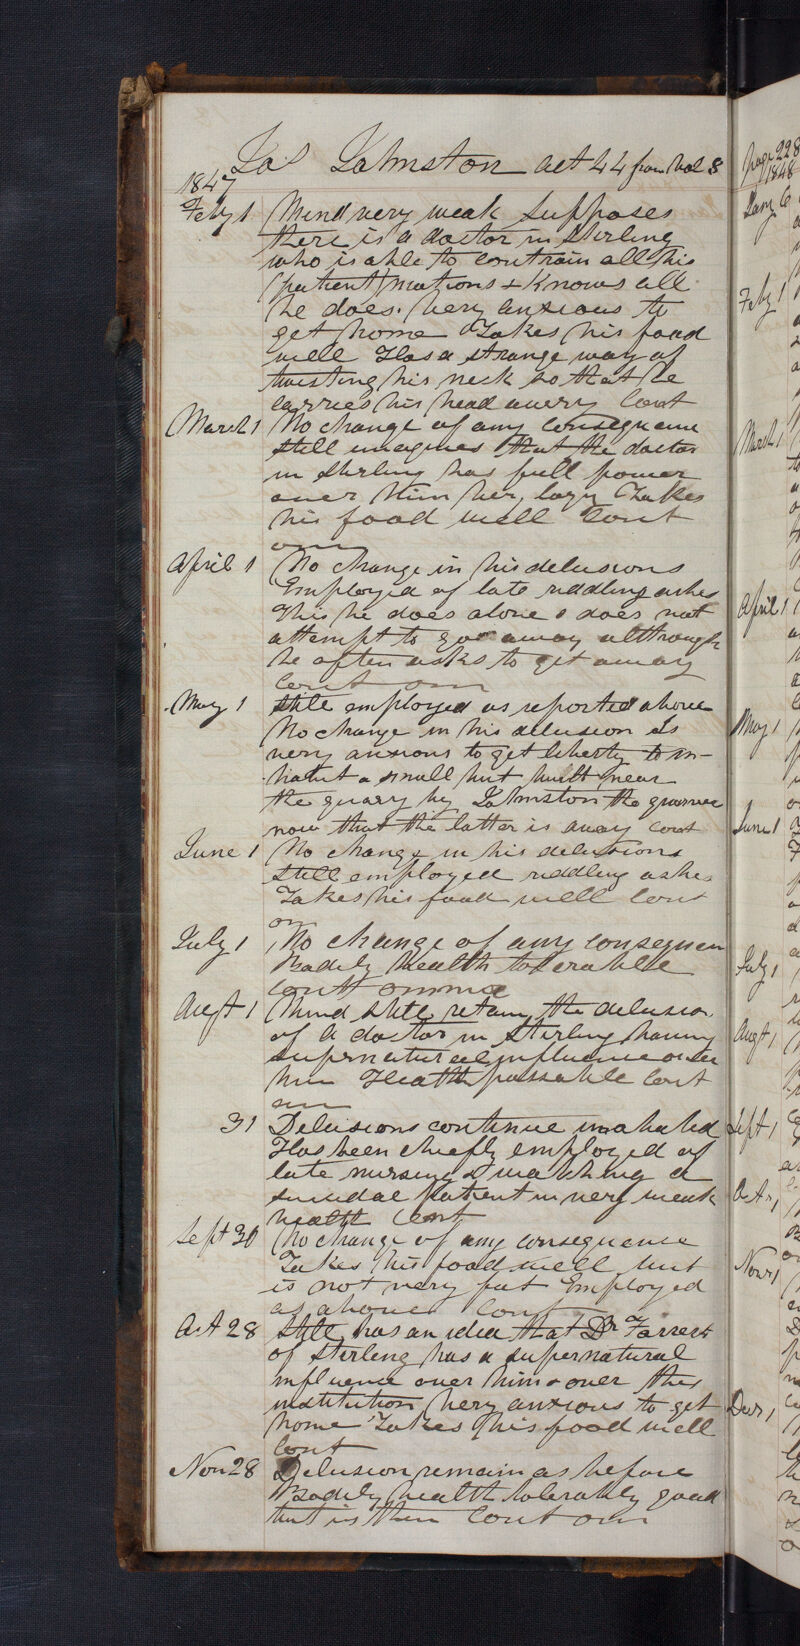 Jas Johnston aet 44 from Vol 8
1847
Feby 1 Mind very weak Supposes
there is a doctor in Stirling
who is able to contrain all his
(patient) motions & knows all
he does. Very anxious to
get home Takes his food
well Has a strange way of
twisting his neck so that he
carries his head awery Cont
March 1 No change of any consequence
still imagines that the doctor
in Stirling has full power
over him Very lazy Takes
his food well Cont
om
April 1 No change in his delusions
Employed of late riddling ashes
This he does alone & does not
attempt to go away although
he often asks to get away
Cont om
May 1 Still employed as reported above
No change in his delusion Is
very anxious to get liberty to in-
habit a small hut built near
the quarry by Johnston the
now that the latter is away Cont
June 1 No change in his delusions
still employed riddling ashes
Takes his food well Cont
om
July 1 No change of any consequen
Bodily health tolerable
Cont omnia
Augt 1 Mind still retains the delusion
of a doctor in Stirling having
supernatural influence over
him Health passable Cont
om
31 Delusions continue unabated
Has been chiefly employed of
late nursing & watching a
suicidal patient in very weak
health Cont
Sept 30 No change of any consequence
Takes his food well but
is not very fat Employed
as above Cont
Oct 28 Still has an idea that Dr Forrest
of Stirling has a supernatural
influence over him & over this
institution Very anxious to get
home Takes his food well
Cont
Nov 28 Delusion remain as before
Bodily health tolerably good
but is thin Cont om
page 228
1848
Jany 6
Feby 1
March 1
April 1
May 1
June 1
July 1
Augt 1
Sept 1
Oct 1
Novr 1
Decr 1